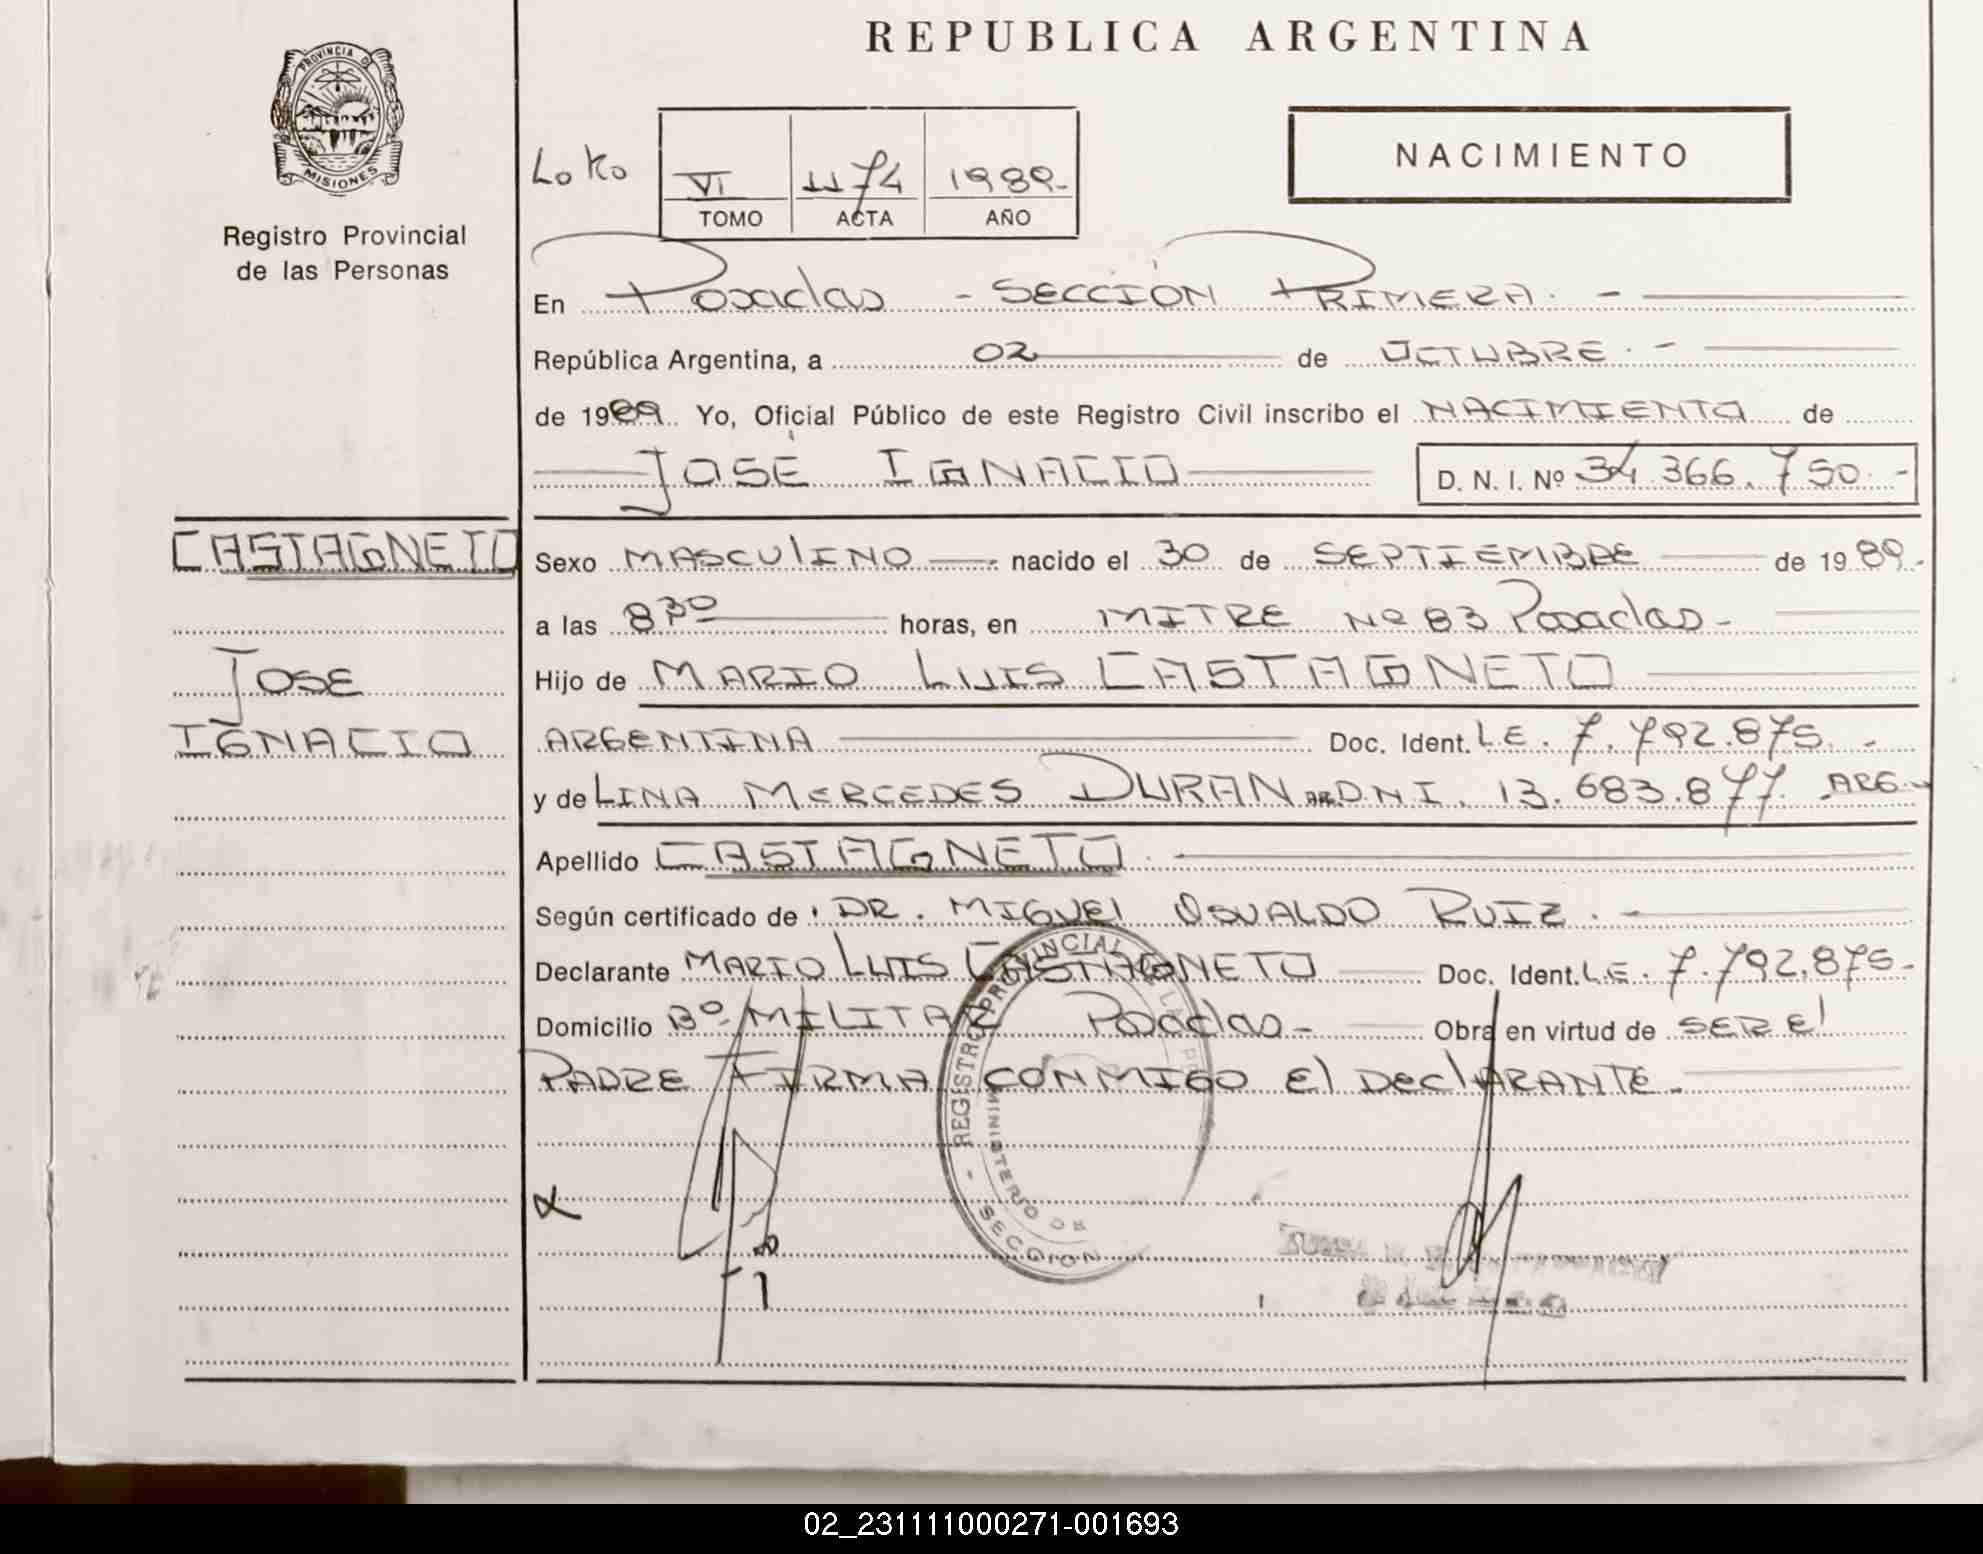 REPUBLICA ARGENTINA
PROVINCIA DE
MISIONES
Registro Provincial
de las Personas
VI 1174 1989.-
TOMO ACTA AÑO
NACIMIENTO
En Posadas - SECCIÓN PRIMERA. -
República Argentina, a 02 de OCTUBRE. -
de 1989. Yo, Oficial Público de este Registro Civil inscribo el NACIMIENTO de
JOSÉ IGNACIO D. N. I. Nº 34.366.750.-
CASTAGNETO
JOSE
IGNACIO
Sexo MASCULINO nacido el 30 de SEPTIEMBRE de 1989.-
a las 8 30 horas, en MITRE Nº 83 Posadas-
Hijo de MARIO LUIS CASTAGNETO
ARGENTINA Doc. Ident. L.E. 7.792.875. -
y de LINA MERCEDES DURAN D.N.I. 13.683.877. ARG.-
Apellido CASTAGNETO.
Según certificado de DR. MIGUEL OSVALDO RUIZ. -
Declarante MARIO LUIS CASTAGNETO Doc. Ident. L.E. 7.792.875-
Domicilio Bº MILITAR Posadas- Obra en virtud de SER El
PADRE FIRMA CONMIGO El DEClARANTE.-
REGISTRO PROVINCIAL
MINISTERIO DE
SECCION
02_231111000271-001693